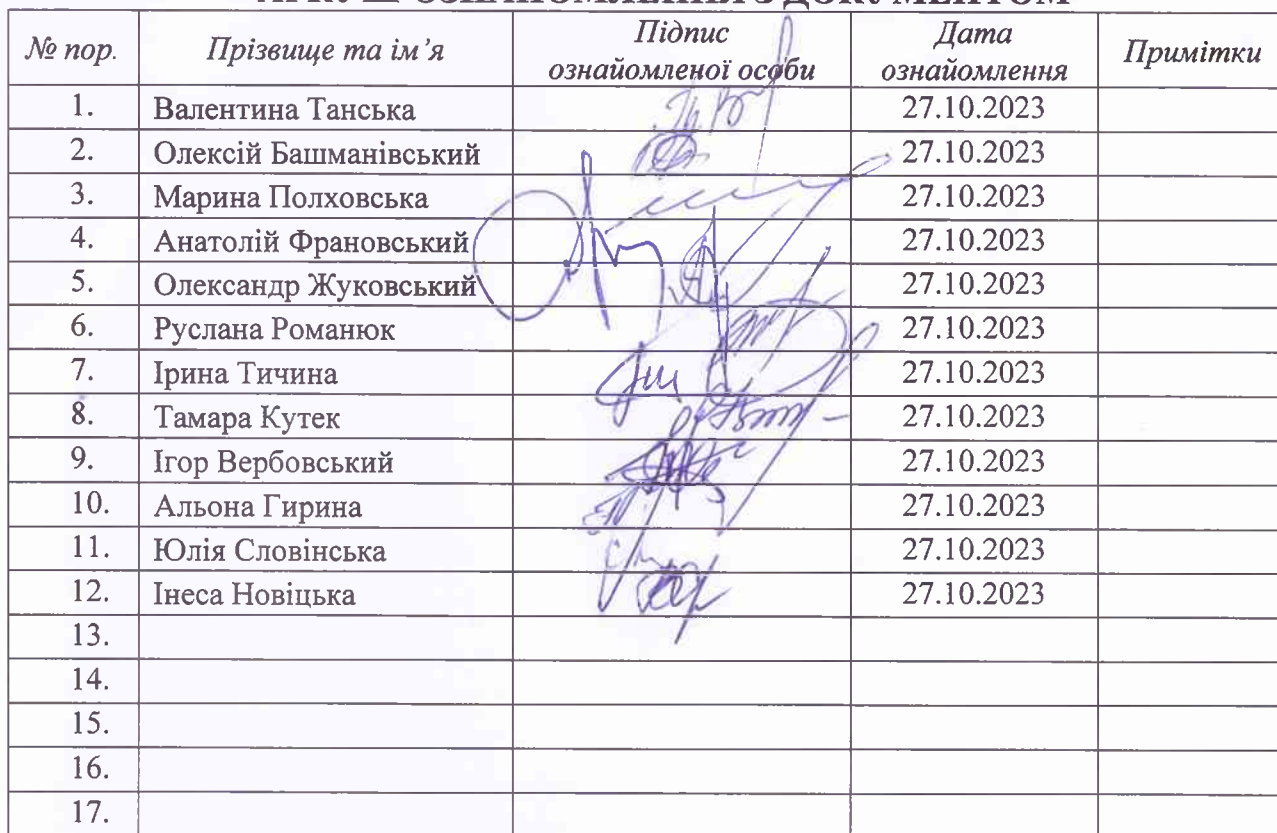 АРКУШ ОЗНАЙОМЛЕННЯ З ДОКУМЕНТОМ
№ пор. Прізвище та ім’я Підпис ознайомленої особи Дата ознайомлення Примітки
1. Валентина Танська 27.10.2023
2. Олексій Башманівський 27.10.2023
3. Марина Полховська 27.10.2023
4. Анатолій Франовський 27.10.2023
5. Олександр Жуковський 27.10.2023
6. Руслана Романюк 27.10.2023
7. Ірина Тичина 27.10.2023
8. Тамара Кутек 27.10.2023
9. Ігор Вербовський 27.10.2023
10. Альона Гирина 27.10.2023
11. Юлія Словінська 27.10.2023
12. Інеса Новіцька 27.10.2023
13.
14.
15.
16.
17.